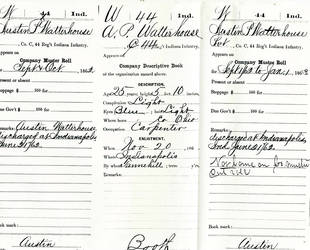 W 44 Ind.
Austin P Watterhouse
Co. C, 44 Reg't Indiana Infantry.
Appears on
Company Muster Roll
for Sept & Oct, 186
Present or absent
Stoppage, $ 100 for
Due Gov't $ 100 for
Remarks: Austin Watterhouse
discharged at Indianapolis
June 21/62.
Book mark:
Austin
W 44 Ind.
A. P. Watterhouse
Co. C, 44 Reg't Indiana Infantry.
Appears on
Company Descriptive Book
of the organization named above.
DESCRIPTION.
Age 25 years; height 5 feet 10 inches.
Complexion Light
Eyes Blue; hair Light
Where born Co Ohio
Occupation Carpenter
ENLISTMENT.
When Nov 20, 186
Where Indianapolis
By whom
Remarks:
Book
W 44 Ind.
Austin P Watterhouse
Pvt, Co. C, 44 Reg't Indiana Infantry.
Appears on
Company Muster Roll
for Sept 1/62 to Jan 1, 1863
Present or absent
Stoppage, $ 100 for
Due Gov't $ 100 for
Remarks:
discharged at Indianapolis
Ind June 21/62
Book mark:
Austin